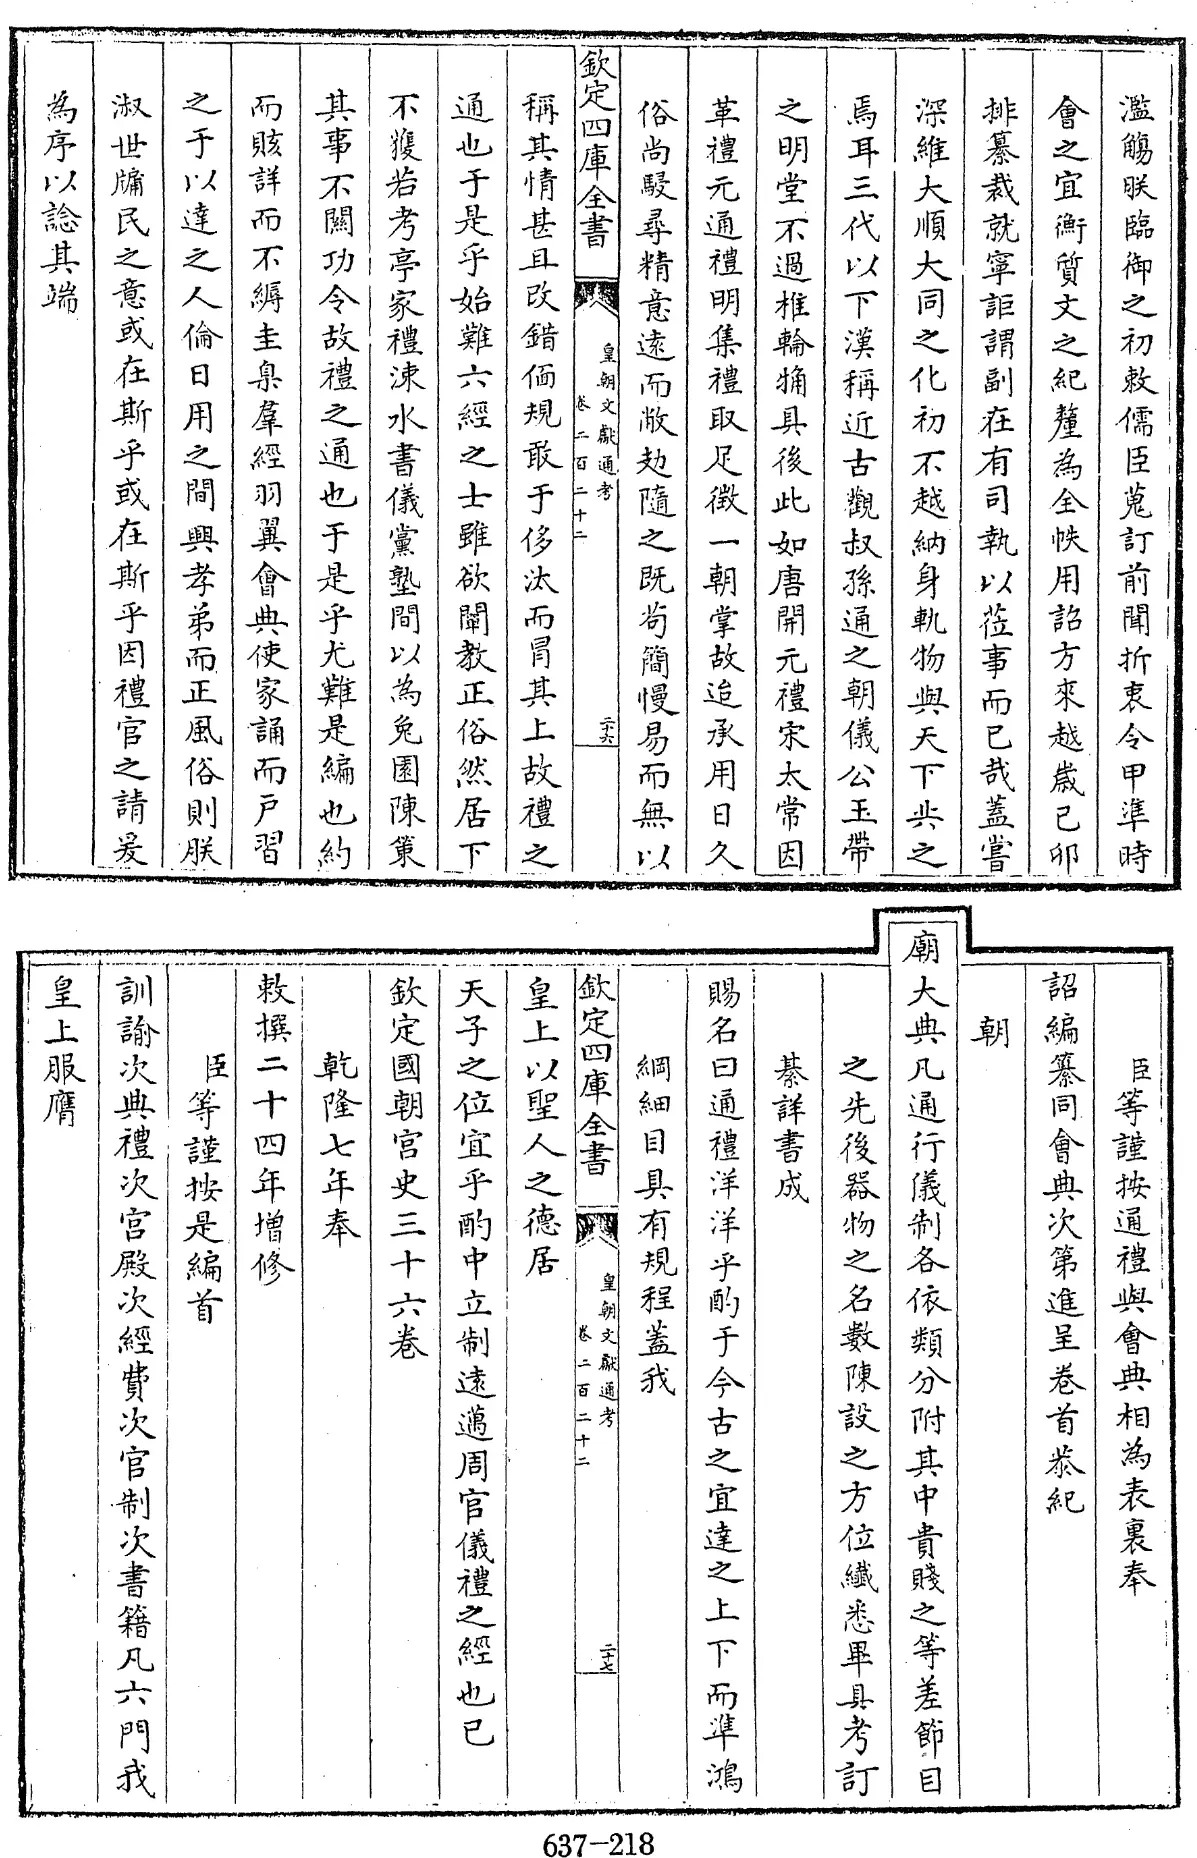 濫觴朕臨御之初敕儒臣蒐訂前聞折衷令甲準時
會之宜衡質文之紀釐為全帙用詔方來越歲己卯
排纂裁就寧詎謂副在有司執以莅事而已哉蓋嘗
深維大順大同之化初不越納身軌物與天下共之
焉耳三代以下漢稱近古觀叔孫通之朝儀公玉帶
之明堂不過椎輪觕具後此如唐開元禮宋太常因
革禮元通禮明集禮取足徵一朝掌故迨承用日久
俗尚駸尋精意遠而敝勊隨之既苟簡慢易而無以
欽定四庫全書
皇朝文獻通考
卷二百二十二
二十六
稱其情甚且改錯偭規敢于侈汰而冐其上故禮之
通也于是乎始難六經之士雖欲闡教正俗然居下
不獲若考亭家禮涑水書儀黨塾間以為兔園陳策
其事不關功令故禮之通也于是乎尤難是編也約
而賅詳而不縟圭臬羣經羽翼會典使家誦而戶習
之于以達之人倫日用之間興孝弟而正風俗則朕
淑世牖民之意或在斯乎或在斯乎因禮官之請爰
為序以諗其端
臣等謹按通禮與會典相為表裏奉
詔編纂同會典次第進呈卷首恭紀
朝
廟大典凡通行儀制各依類分附其中貴賤之等差節目
之先後器物之名數陳設之方位纖悉畢具考訂
綦詳書成
賜名曰通禮洋洋乎酌于今古之宜達之上下而準鴻
綱細目具有規程蓋我
欽定四庫全書
皇朝文獻通考
卷二百二十二
二十七
皇上以聖人之德居
天子之位宜乎酌中立制遠邁周官儀禮之經也已
欽定國朝宮史三十六卷
乾隆七年奉
敕撰二十四年增修
臣等謹按是編首
訓諭次典禮次宮殿次經費次官制次書籍凡六門我
皇上服膺
637-218